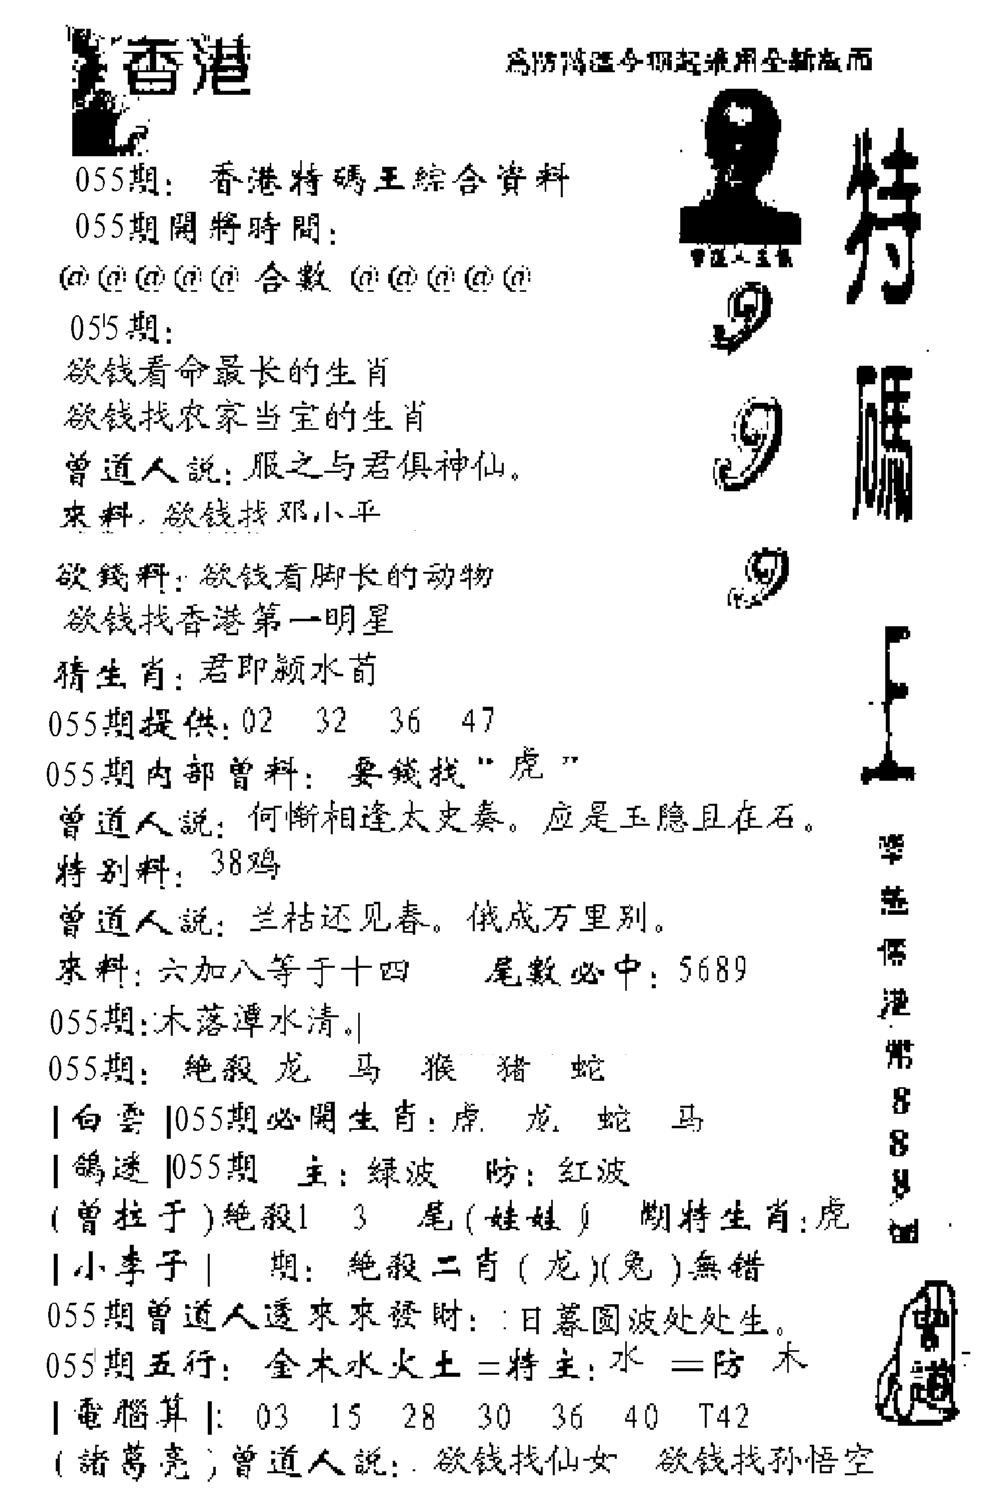 香港
為防濫僞今期起採用全新版面
055期: 香港特碼王綜合資料
055期開將時間:
@@@@@合數@@@@@
055期:
欲钱看命最长的生肖
欲钱找农家当宝的生肖
曾道人説: 服之与君俱神仙。
來料: 欲钱找邓小平
欲錢料: 欲钱看脚长的动物
欲钱找香港第一明星
猜生肖: 君即颍水荀
055期提供: 02 32 36 47
055期内部曾料: 要錢找“虎”
曾道人説: 何惭相逢太史奏。应是玉隐且在石。
特别料: 38鸡
曾道人説: 兰枯还见春。俄成万里别。
來料: 六加八等于十四 尾數必中: 5689
055期: 木落潭水清。
055期: 絶殺 龙 马 猴 猪 蛇
|白雲|055期必開生肖: 虎 龙 蛇 马
|鴿迷|055期 主: 绿波 防: 红波
(曾拉于)絶殺1 3 尾(娃娃)期特生肖:虎
|小李子| 期: 絶殺二肖(龙)(兔)無错
055期曾道人透來來發財: 日暮圆波处处生。
055期五行: 金木水火土=特主: 水 =防 木
|電腦算|: 03 15 28 30 36 40 T42
(諸葛亮)曾道人説: 欲钱找仙女 欲钱找孙悟空
特碼王
999
港
888
曾道